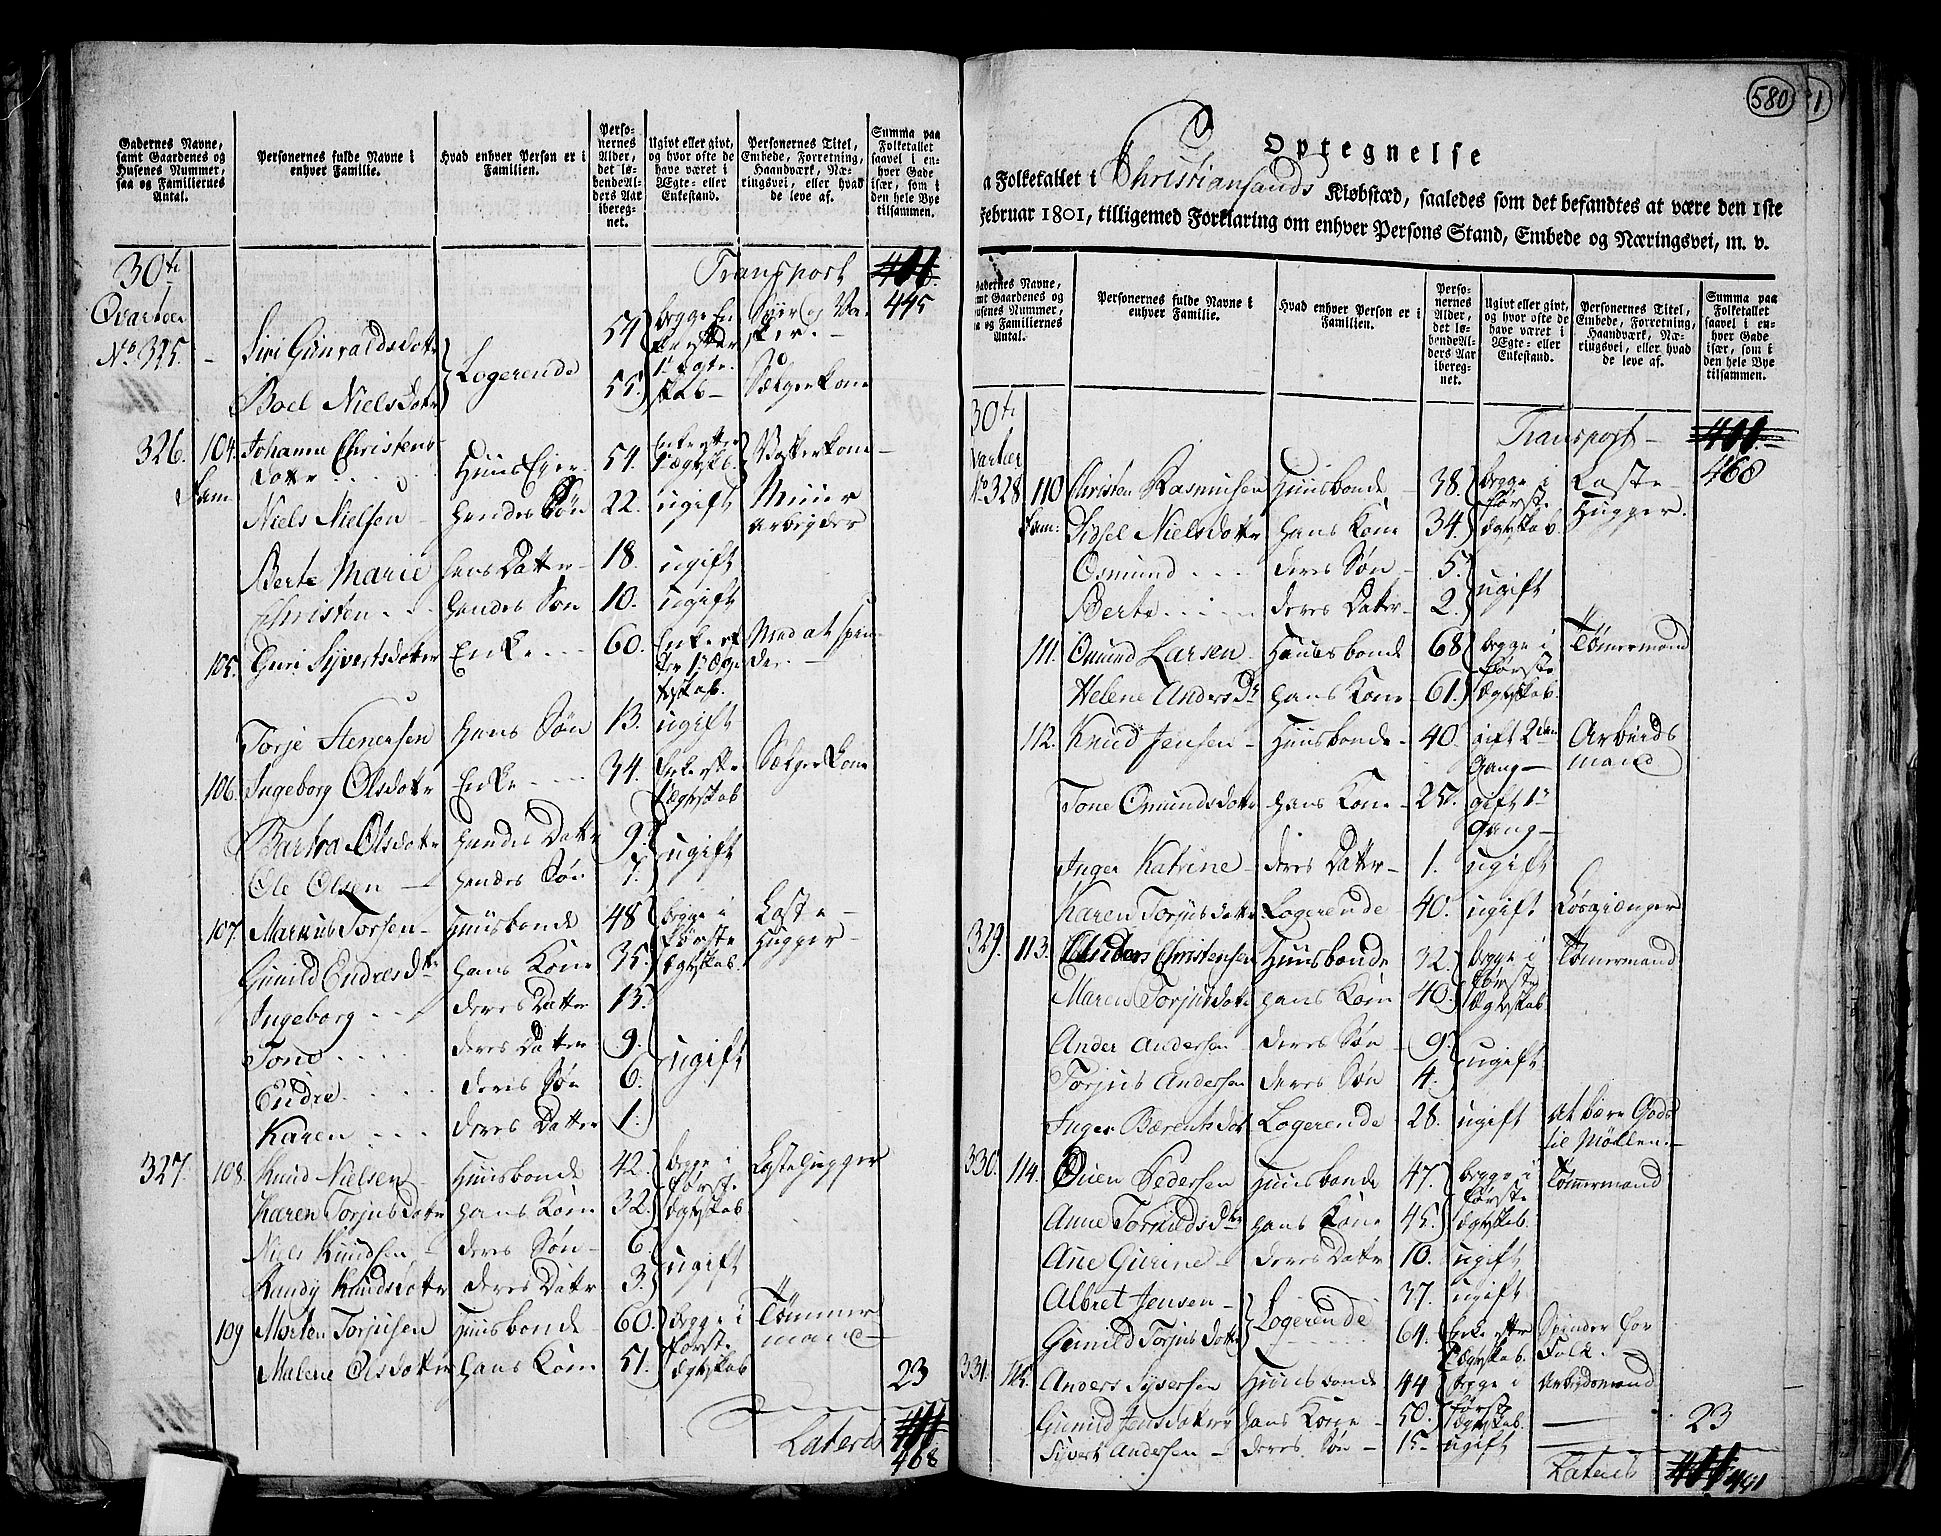 Gadernes Navne, samt Gaardenes og Husenes Nummer, saa og Familiernes Antal.
Personernes fulde Navne i enhver Familie.
Hvad enhver Person er i Familien.
Personernes Alder, det løbende Alders Aar iberegnet.
Ugivt eller givt, og hvor ofte de have været i Ægte- eller Enkestand.
Personernes Titel, Embede, Forretning, Haandværk, Næringsvei, eller hvad de leve af.
Summa paa Folketallet saavel i enhver Gade især, som i den hele Bye tilsammen.
30te Transport
Qvarteer 445
No 325. Siri Gunvaldsdotr Logerende 54
Boel Nielsdotr 55. Sælgerkone
326. 104. Johanna Christensdotr Huus Ejer 54. Enke efter 1 Ægtskb. Vaskerkone
Fam. Niels Nielsen hendes Søn 22. ugift
Berte Marie hans Datter 18. ugift
Christen hendes Søn 10. ugift
105. Guri Syvertsdotter Enke 60. Med at spinder.
Torje Stenersen hans Søn 13. ugift
106. Ingeborg Olsdotr Enke 34. Enke efter 1 Ægtskab Sælger Kone
Barbra Olsdotr hendes Dattr 9. ugift
Ole Olsen hendes Søn 7.
107. Markus Torsen Huusbonde 48 begge i første Ægtskab. Lastehugger
Gunild Endresdtr hans Kone 35.
Ingeborg deres Datter 13.
Tone deres Datter 9. ugift
Endre deres Søn 6.
Karen deres Datter 1.
327. 108. Knud Nielsen Huusbonde 42. begge i første Ægtskab Lastehugger
Karen Torjusdatr hans Kone 32.
Niels Knudsen deres Søn 6. ugift
Randy Knudsdottr deres Datr 3.
109 Morten Torjusen Huusbonde 60. begge i første Ægtskab Tømmermand
Malene Olsdotter hans Kone 51.
23
Lateris
468
580
1
Optegnelse
a Folketallet i Christiansands Kiøbstæd, saaledes som det befandtes at være den 1ste
Februar 1801, tilligemed Forklaring om enhver Persons Stand, Embede og Næringsvei, m. v.
Gadernes Navne, samt Gaardenes og Husenes Nummer, saa og Familiernes Antal.
Personernes fulde Navne i enhver Familie.
Hvad enhver Person er i Familien.
Personernes Alder, det løbende Alders Aar iberegnet.
Ugivt eller givt, og hvor ofte de have været i Ægte- eller Enkestand.
Personernes Titel, Embede, Forretning, Haandværk, Næringsvei, eller hvad de leve af.
Summa paa Folketallet saavel i enhver Gade især, som i den hele Bye tilsammen.
30te Transport
468
No 328 110 Christen Rasmusen Huusbonde 38. begge i første Ægtskab. Lastehugger.
Fam: Sidsel Nielsdotr hans Kone 34.
Osmund deres Søn 5. ugift
Berte deres Dater 2.
111. Omund Larsen Huusbonde 68 begge i første Ægtskab. Tømermand
Helene Anders Dr hans Kone 61.
112. Knud Jensen Huusbonde 40. gift 2den Gang Arbeidsmand
Tone Omundsdotr hans Kone 25. gift 1te Gang
Inger Katrine deres Datter 1. ugift
Karen Torjusdotr Logerende 40. ugift
329. 113. Anders Christensen Huusbonde 32. begge i første Ægtskab. Tømermand
Maren Torjusdotr hans Kone 40.
Ander Andersen deres Søn 9. ugift
Torjus Andersen deres Søn 4.
Inger Bærentsdot Logerende 28. ugift At bære Gods til Møllen
330. 114. Ouen Pedersen Huusbonde 47. begge i første Ægtskab. Tømmermand
Anne hans Kone 45.
Ane Gurine deres Datr 10. ugift
Albret Jensen Logerende 37. ugift
Gunild Torjusdotr 64. Enke efter 1 Ægtskab. Spinder for Folk.
331. 115. Anders Syversen Huusbonde 44 begge i første Ægtskab. Arbejdsmand
Gunild Jensdotter hans Kone 50.
Syvert Andersen deres Søn 15. ugift
23
Lateris 491